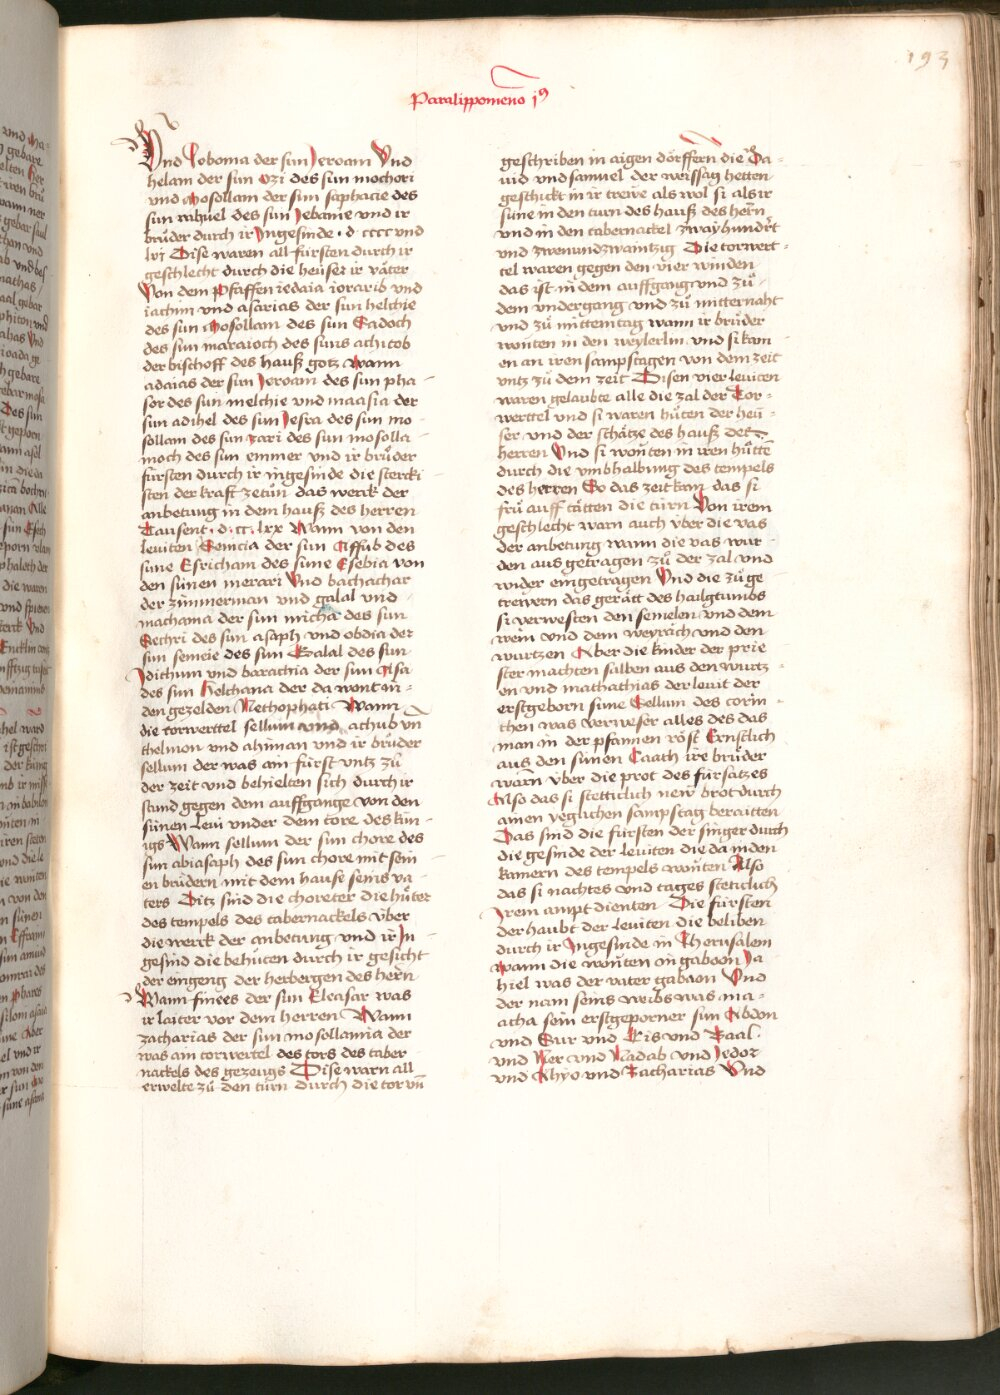 193
Paralippomeno j⁹
Vnd Joboma der sun Jeroam Vnd
helam der sun ozi des sun mochori
vnd Mosollam der sun saphacie des
sun rahuel des sun Jebanie vnd ir
brůder durch ir Jngesinde · d cccc vnd
lvj Dise waren all fürsten durch ir
geschlecht durch die heüser ir väter
Von dem Pfaffen iedaia iorarib vnd
iachim vnd asarias der sun helchie
des sun Mosollam des sun Sadoch
des sun maraioch des suns achitob
der bischoff des hauß gotz Wann
adaias der sun Jeroam des sun pha-
sor des sun melchie vnd maasia der
sun adihel des sun Jesra des sun mo-
sollam des sun zari des sun mosolla-
moch des sun emmer vnd ir brůder
fürsten durch ir ingesinde die stercki-
sten der kraft zetůn das werck der
anbetung in dem hauß des herren
Tausent · d · cc · lxx Wann von den
leuiten Semeia der sun Assub des
sune Esricham des sune Esebia von
den sünen merari Vnd bachachar
der zimmerman vnd galal vnd
machama der sun micha des sun
Zechri des sun asaph vnd obdia der
sun semeie des sun Galal des sun
Jdithum vnd barachia der sun Asa
des sun Helchana der da wont in-
den gezelden Nethophati Wann
die torwerttel sellum vnd achub vn̄
thelmon vnd ahiman vnd ir brüder
sellum der was am fürst vntz zů
der zeit vnd behielten sich durch ir
stund gegen dem auffgange von den
sünen Leui vnder dem tore des kün-
igs Wann sellum der sun chore des
sun abiasaph des sun chore mit sein
en brüdern mit dem hause seins va-
ters Ditz sind die choreter die hůter
des tempels des tabernackels v̈ber
die werck der anbetung vnd ir Jn-
gesind die behüten durch ir gesicht
der eingeng der herbergen des herrn
Wann finees der sun Eleasar was
ir laiter vor dem herren Wann
zacharias der sun mosollamia der
was am torwertel des tors des taber
nackels des gezeugs Dise warn all
erwelte zů den türn durch die tor vn̄
geschriben in aigen dörffern die Da-
uid vnd samuel der weissag hetten
geschickt in ir trewe als wol si als ir
süne in den turn des hauß des hern
vnd in den tabernackel zwayhundrt
vnd zwenundzwaintzig Die torwert-
tel waren gegen den vier winden
das ist in dem auffgang vnd zů-
dem vndergang vnd zů mitternaht
vnd zů mittemtag wann ir brůder
wonten in den weylerlin vnd si kom-
en an iren sampstagen von dem zeit
vntz zů dem zeit Disen vier leuiten
waren gelaubte alle die zal der Tor-
werttel vnd si waren hüten der heü-
ser vnd der schätze des hauß des
herren Vnd si woñten in iren hůtten
durch die vmbhalbung des tempels
des herren So das zeit kam das si
frů auff tätten die türn Von irem
geschlecht warn auch v̈ber die vas
der anbetung wann die vas wur-
den aus getragen zů der zal vnd
wider eingetragen Vnd die zů ge
trewern das gerätt des hailgtumbs
si verwesten den semelen vnd dem
wein vnd dem weyrach vnd den
wurtzen Aber die kinder der prie
ster machten salben aus den wurtz-
en vnd mathathias der leuit der
erstgeborn sune Sellum des corin-
then was verweser alles des das
man in der pfannen röst Ernstlich
aus den sünen Caath ire brüder
warn v̈ber die prot des fürsatzes
Also das si stetticlich new brot durch
ainen yeglichen sampstag beraitten
Das sind die fürsten der singer durch
die gesinde der Leuiten die da in den
kamern des tempels wonten Also
das si nachtes vnd tages steticlich
Jrem ampt dienten Die fürsten
der haubt der leuiten die beliben
durch ir Jngesinde in Jherusalem
wann die woñten in gaboon Ja
hiel was der vater gabaon Vnd
der nam seins weibs was ma-
acha sein erstgeporner sun Abdon
vnd Sur vnd Kis vnd Baal ·
vnd Ner vnd Nadab vnd Jedor
vnd Ahyo vnd Zacharias Vnd